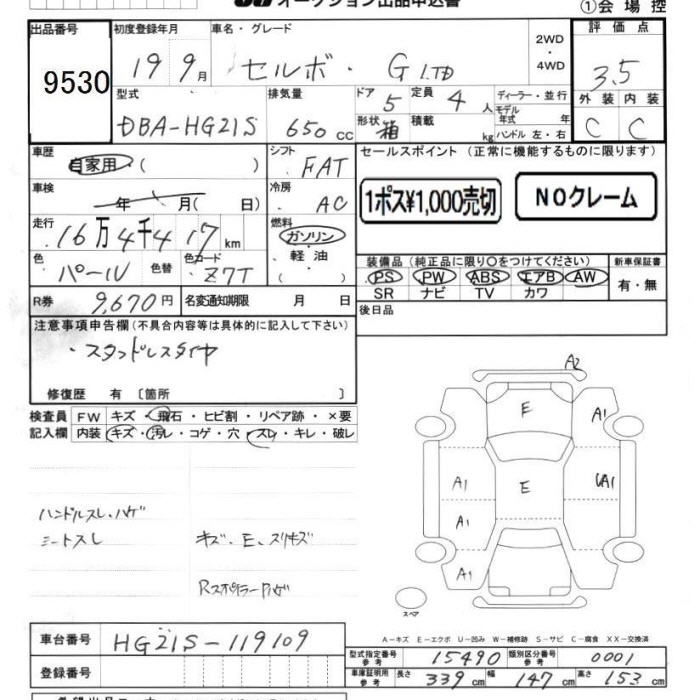 オークション出品申込書
①会場控
出品番号 9530
初度登録年月 19 9月
車名・グレード セルボ・G LTD
2WD・4WD
評価点 3.5
外装 C 内装 C
型式 DBA-HG21S
排気量 650 cc
ドア 5 定員 4人
形状 箱 積載 kg
ディーラー・並行
モデル年式 年
ハンドル 左・右
車歴 自家用 ( )
シフト FAT
車検 年 月( 日)
冷房 AC
走行 16万4千417km
燃料 ガソリン・軽油・( )
色 パール 色替 色コード Z7T
R券 9,670円 名変通知期限 月 日
セールスポイント (正常に機能するものに限ります)
1ポス¥1,000売切
NOクレーム
装備品 (純正品に限り○をつけてください)
PS PW ABS エアB AW
SR ナビ TV カワ
新車保証書 有・無
後日品
注意事項申告欄(不具合内容等は具体的に記入して下さい)
・スタッドレスタイヤ
修復歴 有 〔箇所 〕
検査員記入欄
FW キズ・飛石・ヒビ割・リペア跡・×要
内装 キズ・汚レ・コゲ・穴・スレ・キレ・破レ
ハンドルスレ、ハゲ
シートスレ
キズ、E、スリキズ
Rスポイラーハゲ
A2
E
A1
A1
E
UA1
A1
A1
スペア
A-キズ E-エクボ U-凹み W-補修跡 S-サビ C-腐食 XX-交換済
車台番号 HG21S-119109
登録番号
型式指定番号参考 15490 類別区分番号参考 0001
車庫証明用参考 長さ 339cm 幅 147cm 高さ 153cm